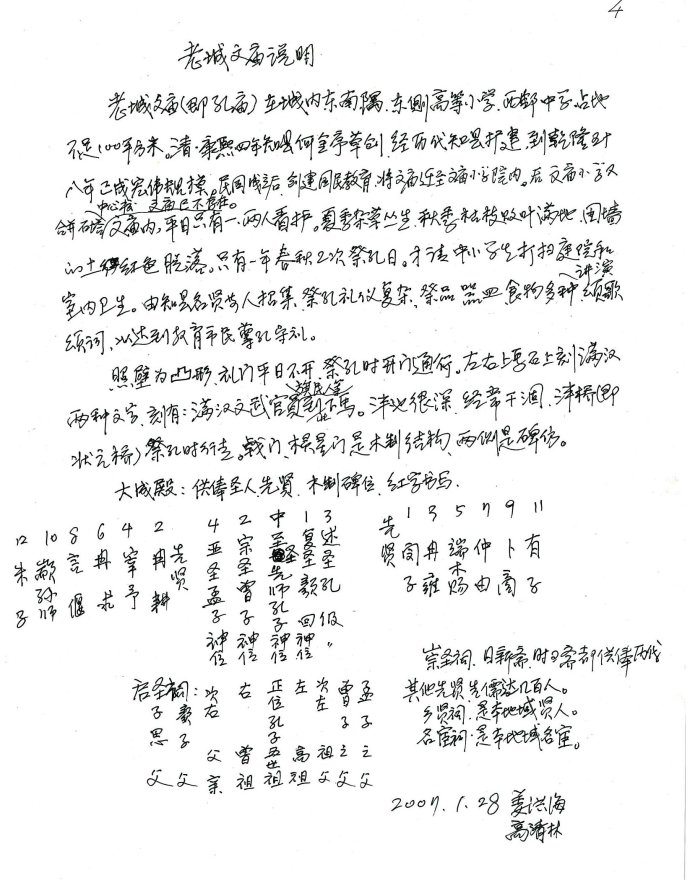 4
老城文庙说明
老城文庙(即孔庙)在城内东南隅、东侧高等小学、西邻中学、占地
不足100平方米。清·康熙四年知县何金序草创、经历代知县扩建、到乾隆五十
八年已成宏伟规模。民国成立后、创建国民教育、将文庙迁至文庙小学院内。后文庙小学又
中心校、文庙已不存在。
合并 文庙内、平日只有一、两人看护。夏季杂草丛生、秋季枯枝败叶满地、围墙
的土 红色脱落。只有一年春秋二次祭孔日。才请中小学生打扫庭院和
室内卫生。由知县名贤安人招集、祭孔礼仪复杂、祭品器皿食物多种、讲演颂歌
颂词、以达到教育市民尊孔守礼。
照壁为凸形、礼门平日不开、祭孔时开门通行。左右上马石上刻满汉
两种文字、刻有:满汉文武官员军民等到此下马。泮池很深、经常干涸、泮桥(即
状元桥)祭孔时行走。戟门、棂星门是木制结构、两侧是碑仿。
大成殿:供俸圣人先贤、木制碑位、红字书写.
12 10 8 6 4 2
朱子 颛孙师 言偃 冉求 宰予 冉耕 先贤
4 2 中 1 3
亚圣孟子神位 宗圣曾子神位 至圣先师孔子神位 复圣颜回神位 述圣孔伋〃
1 3 5 7 9 11
先贤 闵子 冉雍 端木赐 仲由 卜商 有子
崇圣祠、日新斋、时习斋都供俸历代
其他先贤先儒达几百人。
乡贤祠:是本地域贤人。
名宦祠:是本地域名宦。
启圣祠: 次右 右 正位 左 次左
子思父 颜子父 父亲 曾祖 孔子五世祖 高祖 祖父 曾子之父 孟子之父
2007.1.28 姜洪海
高清林